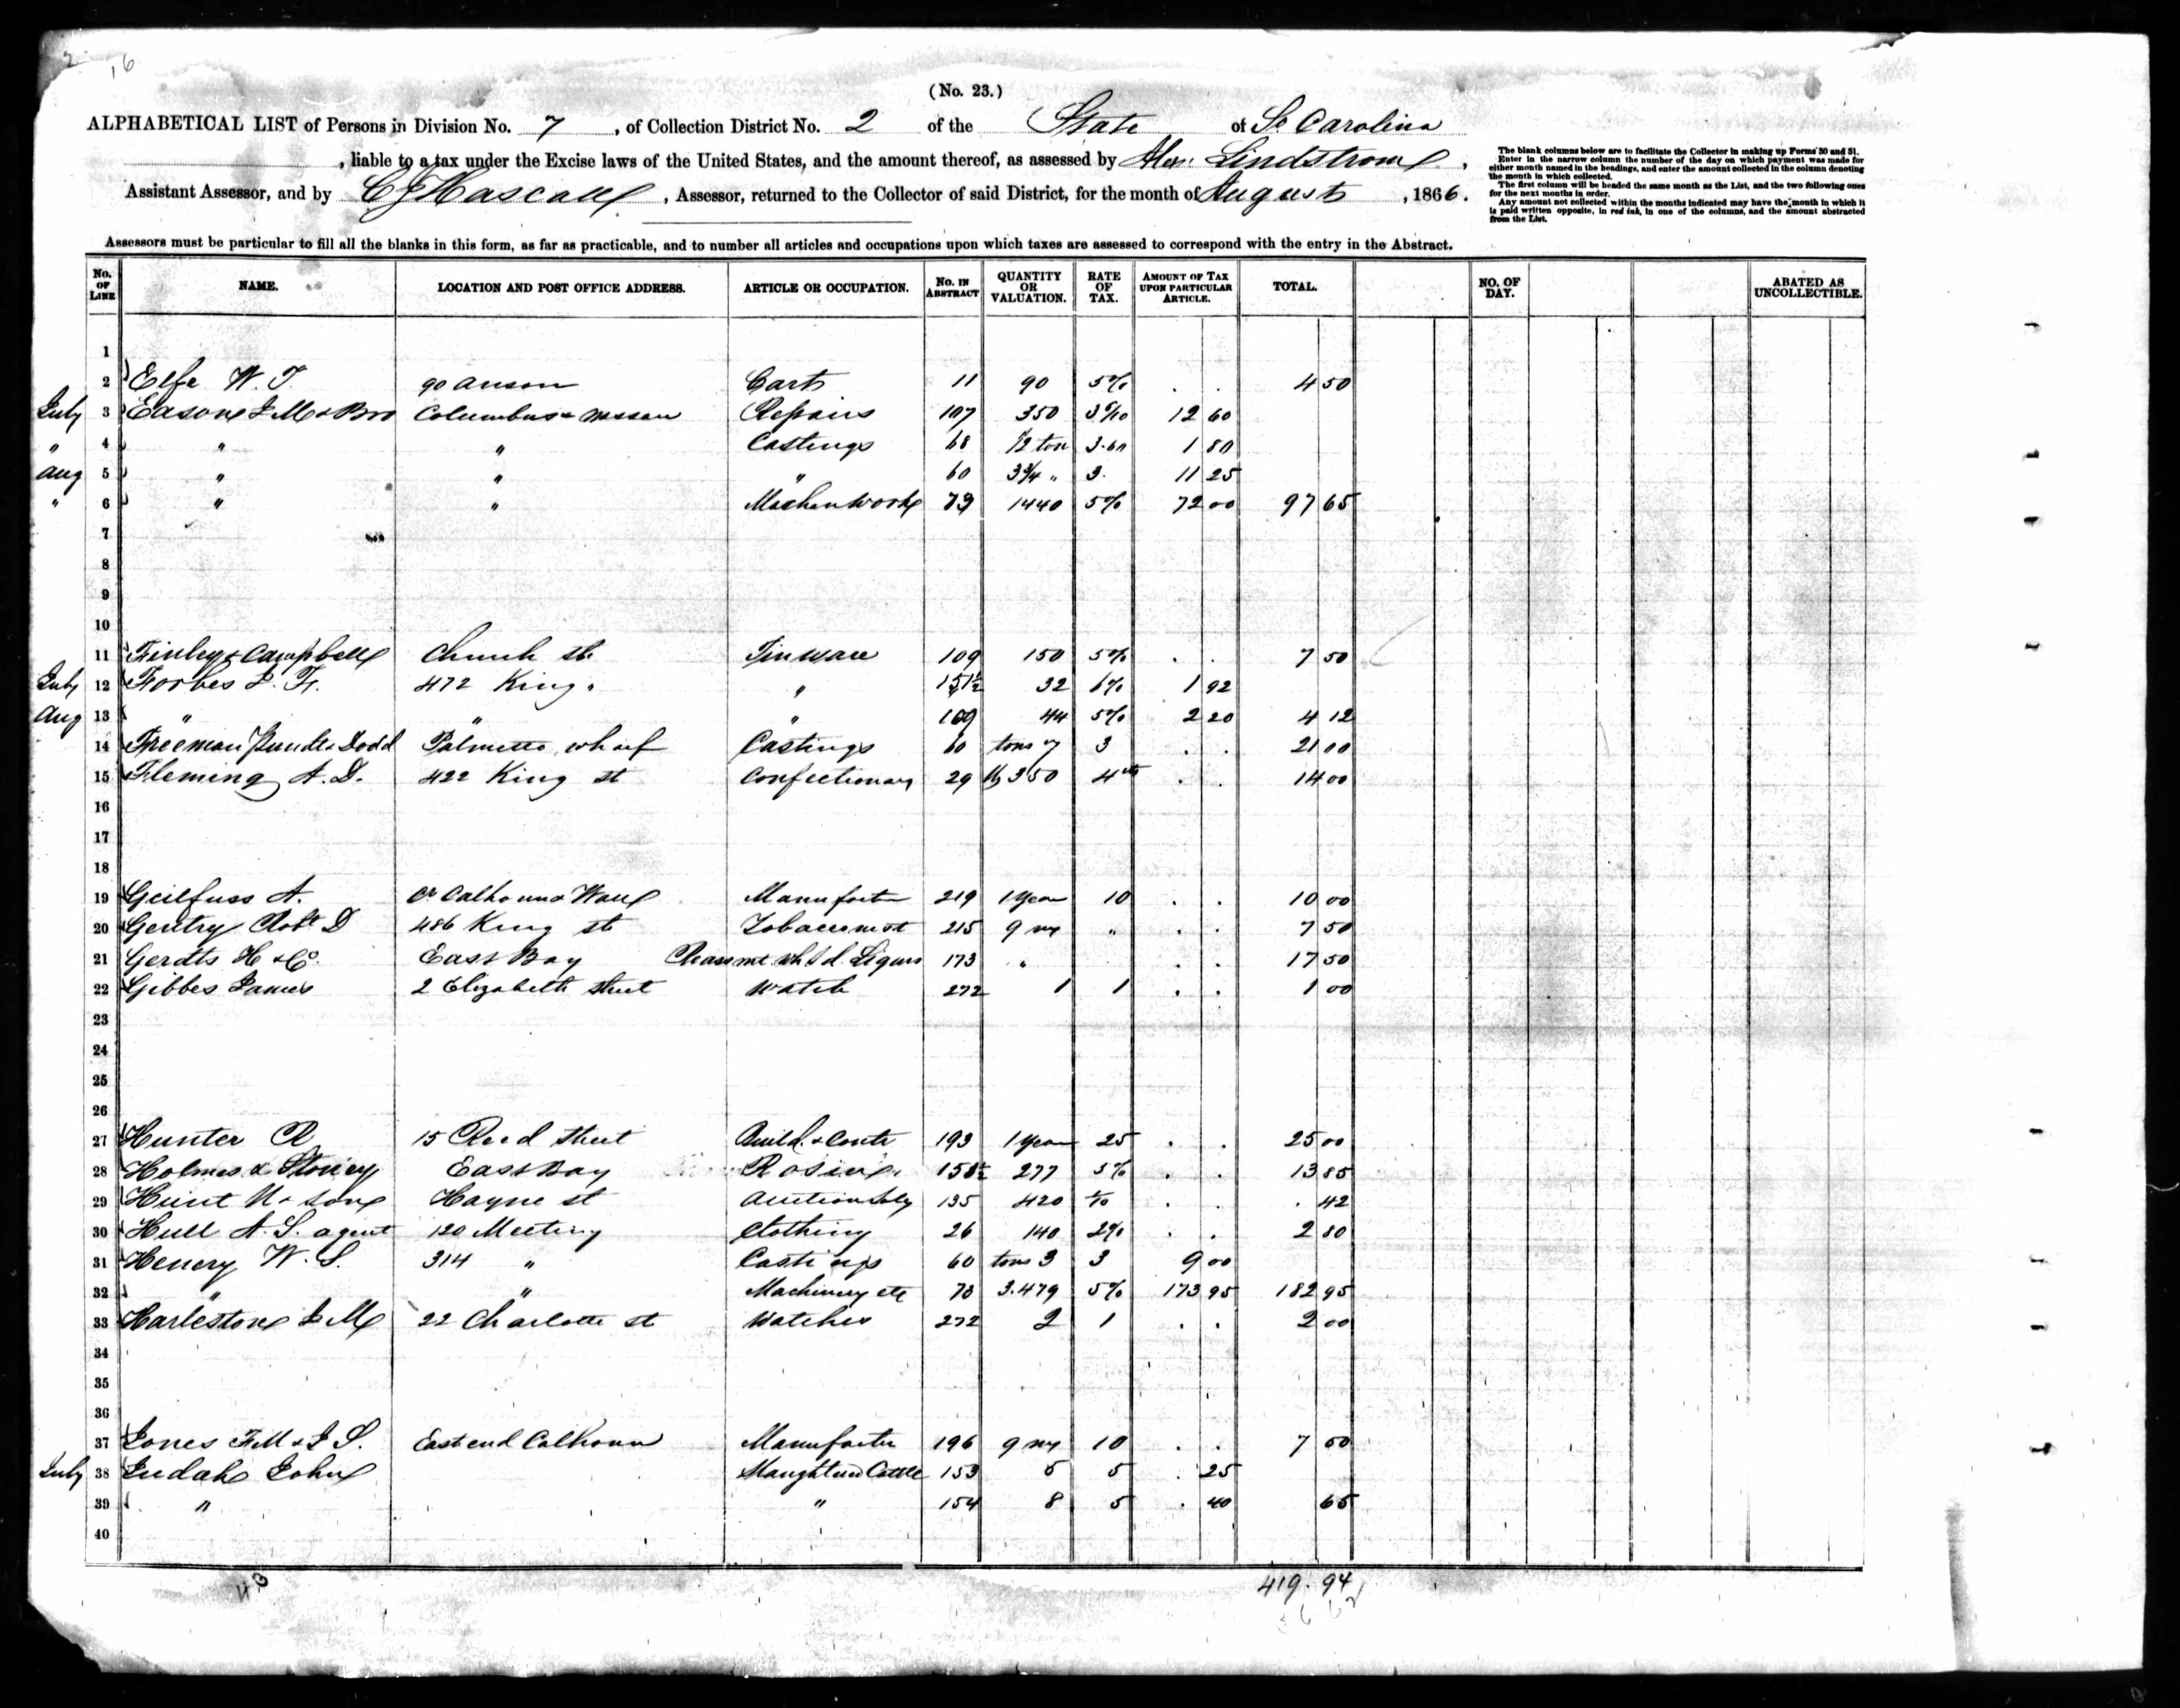 2 16
(No. 23.)
ALPHABETICAL LIST of Persons in Division No. 7, of Collection District No. 2 of the State of So Carolina
, liable to a tax under the Excise laws of the United States, and the amount thereof, as assessed by Alex. Lindstrom,
Assistant Assessor, and by C J Hascall, Assessor, returned to the Collector of said District, for the month of August, 1866.
The blank columns below are to facilitate the Collector in making up Forms 30 and 51.
Enter in the narrow column the number of the day on which payment was made for
either month named in the headings, and enter the amount collected in the column denoting
the month in which collected.
The first column will be headed the same month as the List, and the two following ones
for the next months in order.
Any amount not collected within the months indicated may have the month in which it
is paid written opposite, in red ink, in one of the columns, and the amount abstracted
from the List.
Assessors must be particular to fill all the blanks in this form, as far as practicable, and to number all articles and occupations upon which taxes are assessed to correspond with the entry in the Abstract.
No. OF LINE NAME. LOCATION AND POST OFFICE ADDRESS. ARTICLE OR OCCUPATION. No. IN ABSTRACT QUANTITY OR VALUATION. RATE OF TAX. AMOUNT OF TAX UPON PARTICULAR ARTICLE. TOTAL. NO. OF DAY. ABATED AS UNCOLLECTIBLE.
1
2 Elfe W. T. 90 Anson Carts 11 90 5% 4 50
July 3 Eason J M & Bro Columbus & Nassau Repairs 107 350 3 6/10 12 60
" 4 " " Castings 68 1/2 ton 3.60 1 80
Aug 5 " " " 60 3 3/4 " 3. 11 25
" 6 " " Machen work 73 1440 5% 72 00 97 65
7
8
9
10
11 Finley & Campbell Church st Tinware 109 150 5% 7 50
July 12 Forbes J. F. 472 King " " 151 1/2 32 6% 1 92
Aug 13 " " " 109 44 5% 2 20 4 12
14 Freeman & Dodd Palmetto wharf Castings 60 tons 7 3 21 00
15 Fleming A. D. 422 King st Confectionary 29 lb 350 4 cts 14 00
16
17
18
19 Geilfuss A. Cr Calhoun & Wall Manufactr 219 1 Year 10 10 00
20 Gentry Robt D 486 King st Tobacconist 215 9 ms " 7 50
21 Gerdts H & Co. East Bay wh s d Liquors 173 " 17 50
22 Gibbes James 2 Elizabeth street Watch 272 1 1 1 00
23
24
25
26
27 Hunter R 15 Reed street Build. & Contr 193 1 Year 25 25 00
28 Holmes & Stoney East Bay Rosin 158 1/2 277 5% 13 85
29 Hunt N & Son Hayne st Auction Sales 135 420 1/10 . 42
30 Hull A. S. agent 120 Meeting Clothing 26 140 2% 2 80
31 Henery W. S. 314 " Castings 60 tons 3 3 9 00
32 " " Machinery etc 73 3.479 5% 173 95 182 95
33 Harleston J M 22 Charlotte st Watches 272 2 1 2 00
34
35
36
37 Jones F M & J S. East end Calhoun Manufactr 196 9 ms 10 7 50
July 38 Judah John Slaughtered Cattle 153 5 5 . 25
39 " " 154 8 5 . 40 65
40
419.94